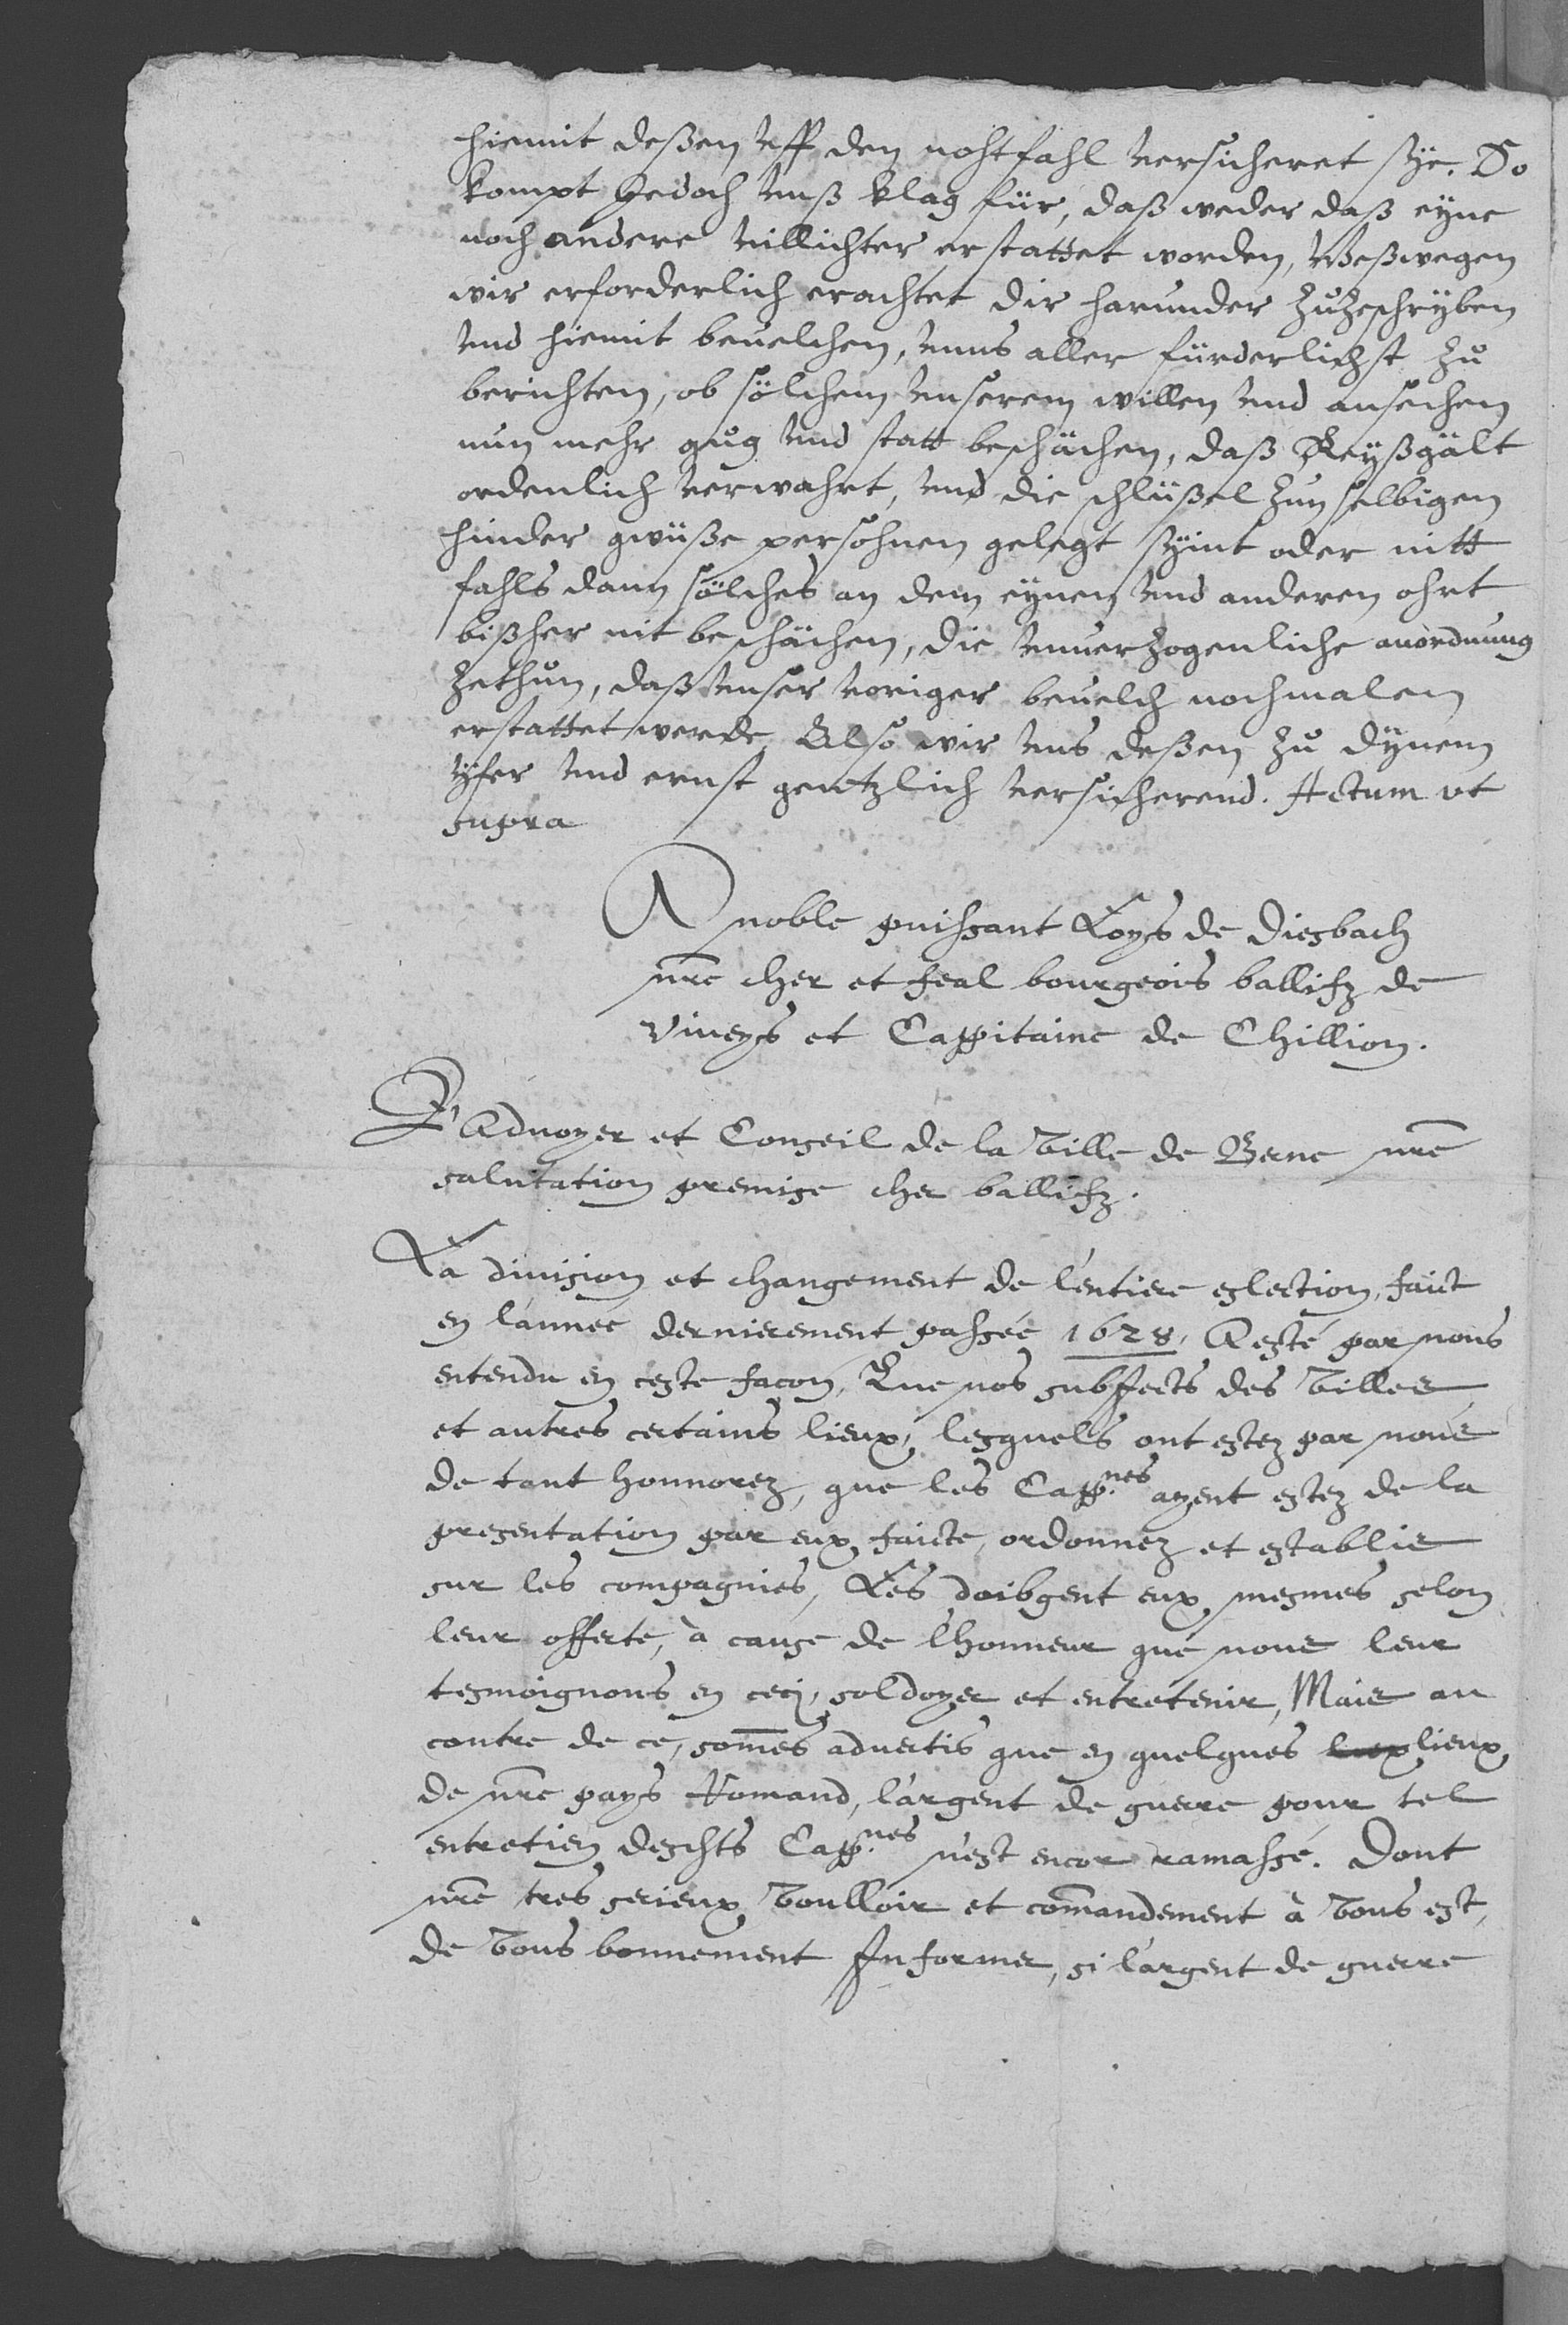 hiemit deßen vff den nohtfahl versicheret sÿe. So
kompt Jedoch vnß klag für, daß weder daß eÿne
noch andere villichter erstattet worden, Weßwegen
wir erforderlich erachtet dir harunder zůzeschrÿben
vnd hiemit beuelchen, vnns aller fürderlichst zů
berichten, ob sölchem vnserem willen vnd ansechen
nun mehr gnůg vnd statt beschächen, daß Reÿßgält
ordenlich verwahrt, vnd die schlüßel zun selbigen
hinder gwüße persohnen gelegt sÿint oder nitt
fahls dann sölches an dem eÿnen vnd anderen ohrt
bißher nit beschächen, die vnuerzogenliche anordnung
zethůn, daß vnser voriger beuelch nochmalen
erstattet werde, Also wir vns deßen zů dÿnem
ÿfer vnd ernst gentzlich versicherend. Actum vt
supra
A noble puissant Loys de Diesbach
nre cher et feal bourgeois ballifz de
Viueys et Cappitaine de Chillion.
L'Aduoyer et Conseil de la Ville de Berne nre
salutation premise cher ballifz.
La diuision et changement de l'entiere eslection, faict
en l'année dernierement passée 1628, A esté par nous
entendu en ceste facon, Que nos subiects des Villes
et autres certains lieux, lesquels ont estez par nous
de tant honnorez, que les Capp.nes ayent estez de la
presentation par eux faicte, ordonnez et establis
sur les compagnies, Les doibgent eux mesmes selon
leur offerte, à cause de l'honneur que nous leur
tesmoignons en cecj, soldoyer et entretenir, Mais au
contre de ce, somes aduertis que en quelques lieux
de nre pays Romand, l'argent de guerre pour tel
entretien desdits Capp.nes n'est encor ramassé. Dont
nre tres serieux Voulloir et comandement à Vous est,
de Vous bonnement Informer, si l'argent de guerre